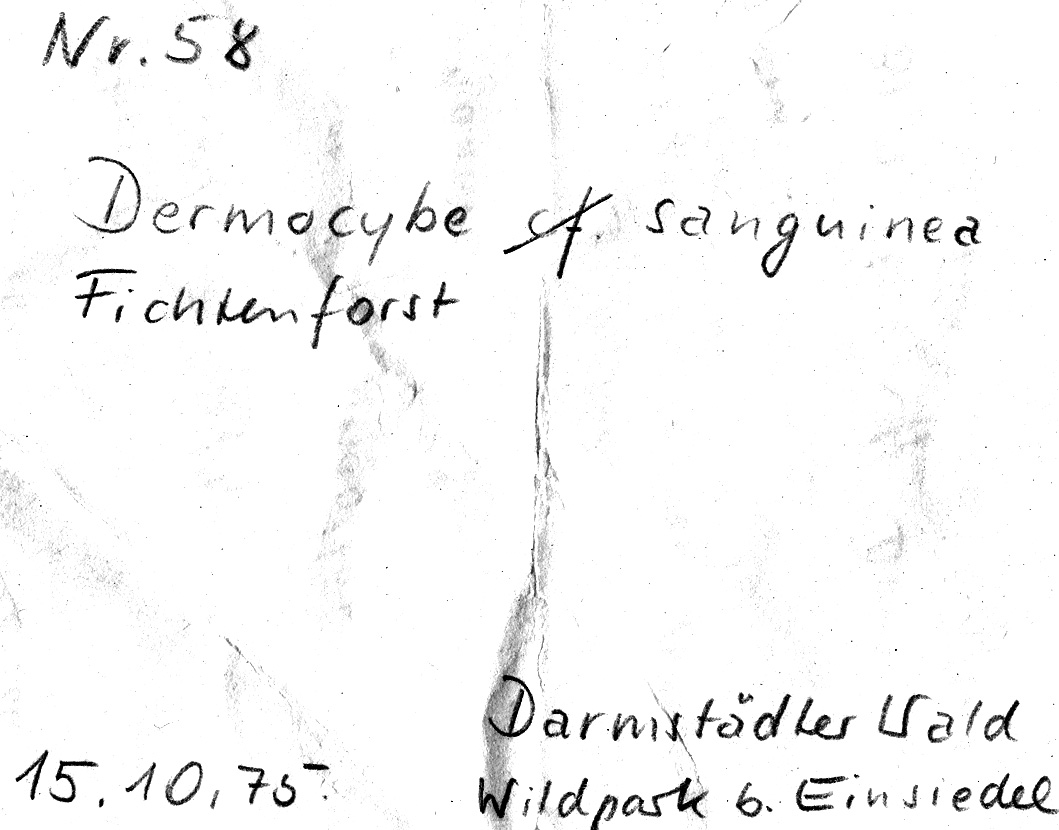 Nr. 58
Dermocybe cf. sanguinea
Fichtenforst
Darmstädter Wald
15.10.75. Wildpark b. Einsiedel